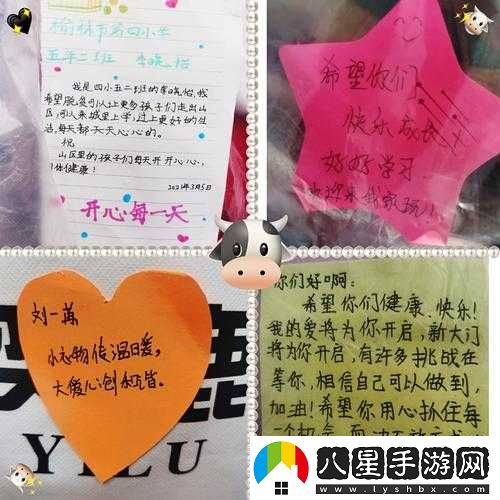 榆林市第四小学
五年二班 李晓怡
我是四小五二班的李晓怡,我
希望脱贫可以让更多孩子们走出山
区,可以来城里上学,过上更好的生
活,每天都开开心心的。
祝
山区里的孩子们每天开开心心,
身体健康!
2021年3月5日
开心每一天
希望你们
快乐成长
好好学习
欢迎来我家玩!
刘一苒
小礼物传温暖,
大爱心创和谐。
YILU
你们好啊:
希望你们健康、快乐!
我的爱将为你开启,新大门
将为你开启,有许多挑战在
等你,相信自己可以做到,
加油!希望你用心抓住每
一个机会,而
八星手游网
www.lyshbx.com